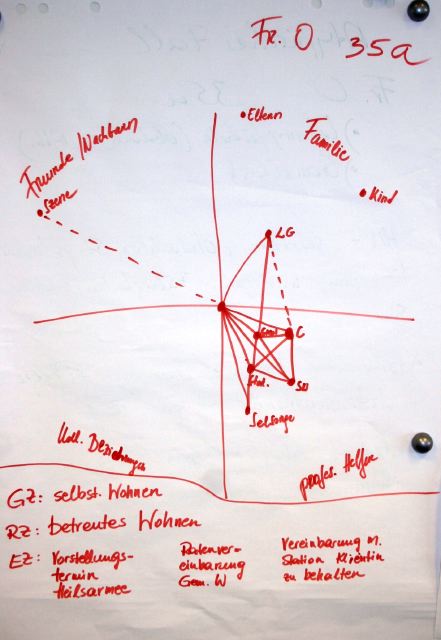 Fr. O 35a
Eltern
Familie
Freunde/Nachbarn
Szene
Kind
LG
C
Stat.
SD
Selsorge
Koll. Beziehungen
profes. Helfer
GZ: selbst. Wohnen
RZ: betreutes Wohnen
EZ: Vorstellungs-
termin
Heilsarmee
Ratenver-
einbarung
Gem. W
Vereinbarung m.
Station Klientin
zu behalten